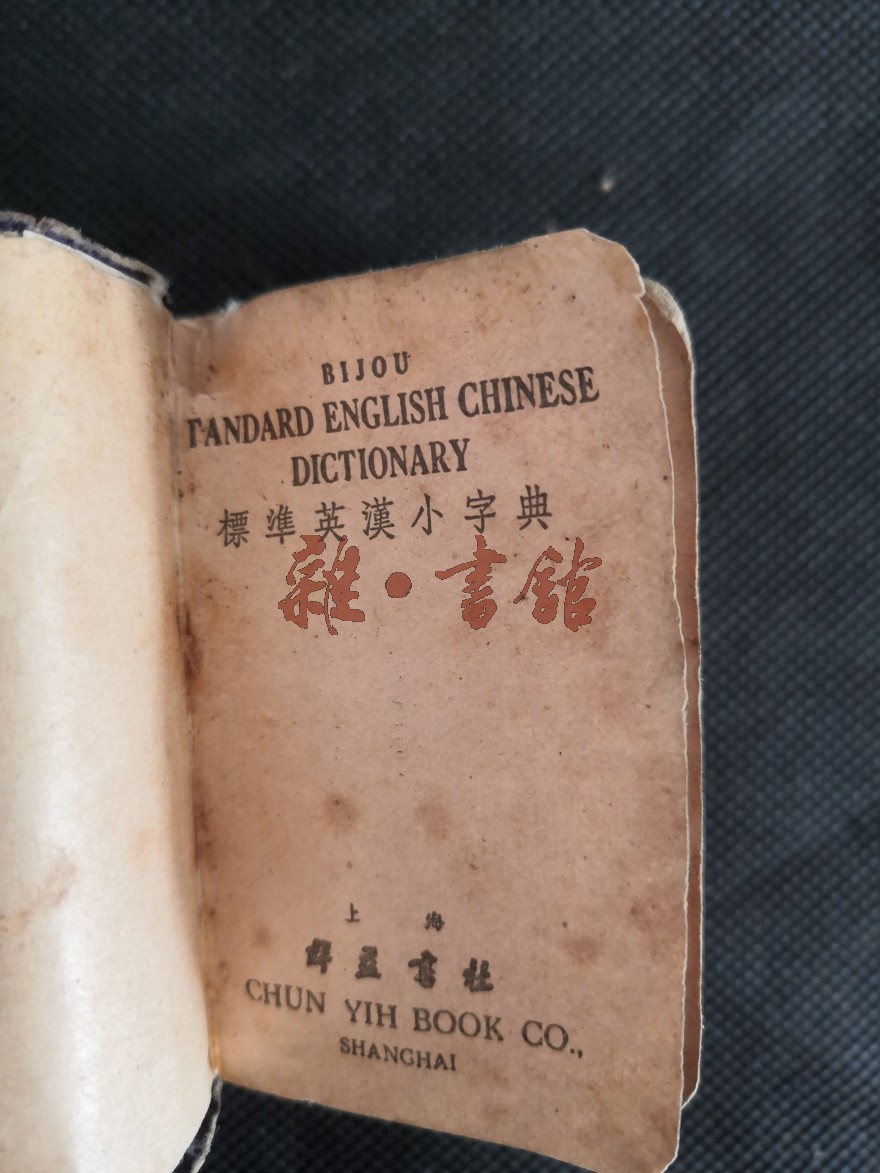 BIJOU
STANDARD ENGLISH CHINESE
DICTIONARY
標準英漢小字典
雜·書館
上海
群益書社
CHUN YIH BOOK CO.,
SHANGHAI